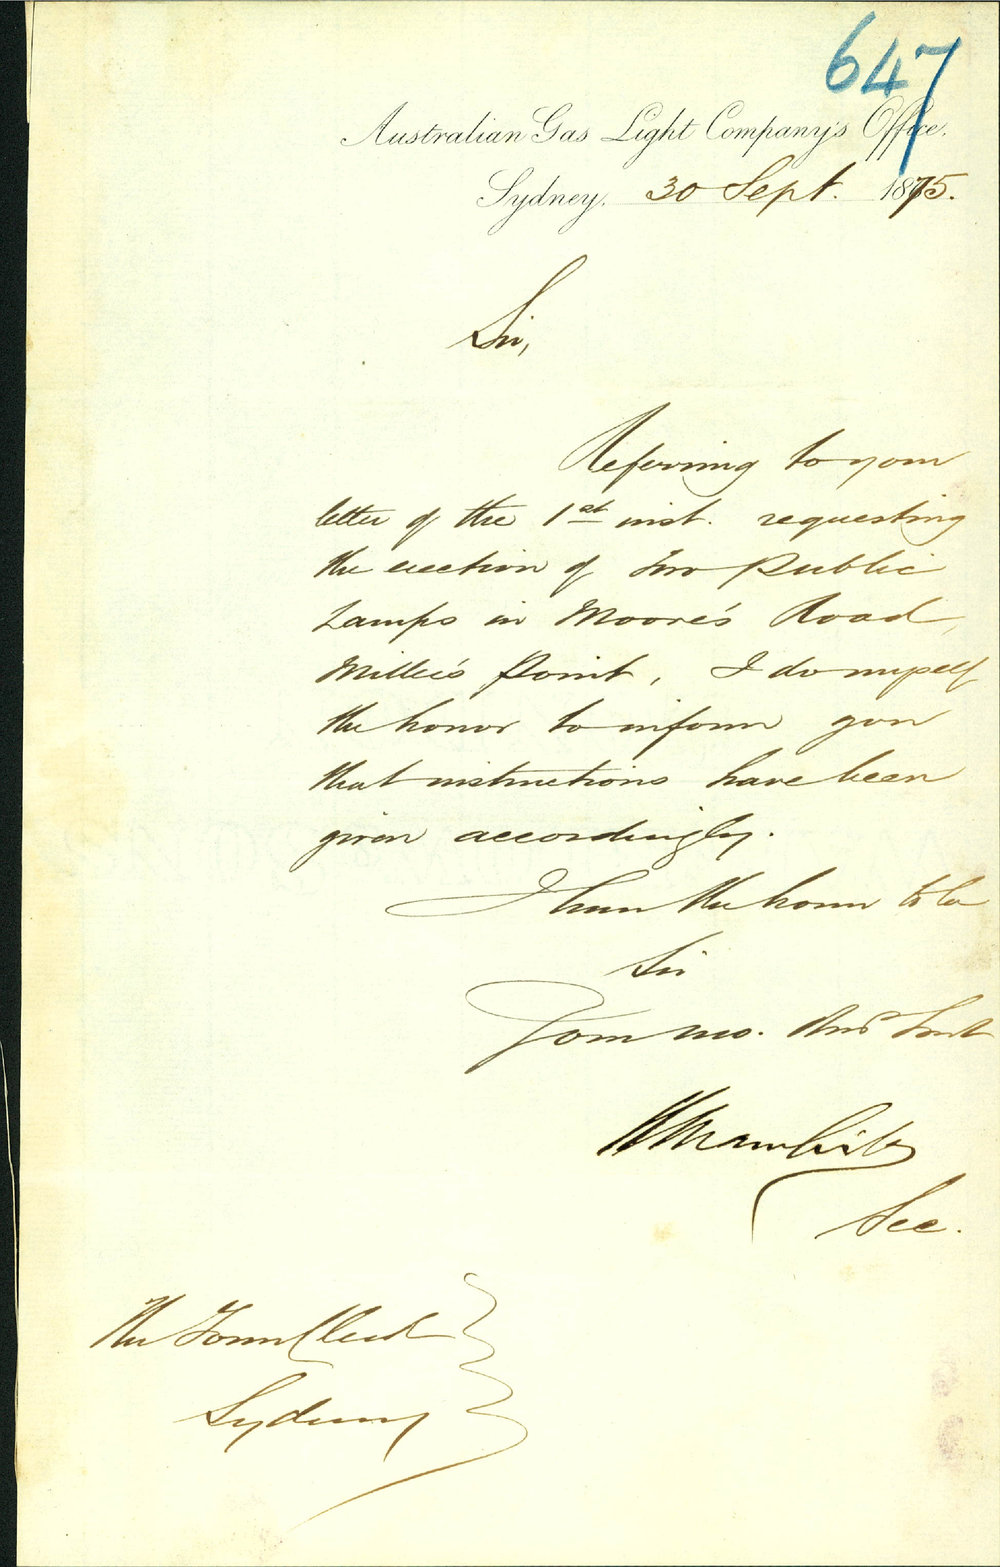 647
Australian Gas Light Company's Office.
Sydney. 30 Sept. 1875.
Sir,
Referring to your
letter of the 1st inst. requesting
the erection of Two Public
Lamps in Moore's Road,
Miller's Point, I do myself
the honor to inform you
that instructions have been
given accordingly.
I have the honor to be
Sir
Your mo. Obt Servt
Sec.
The Town Clerk
Sydney